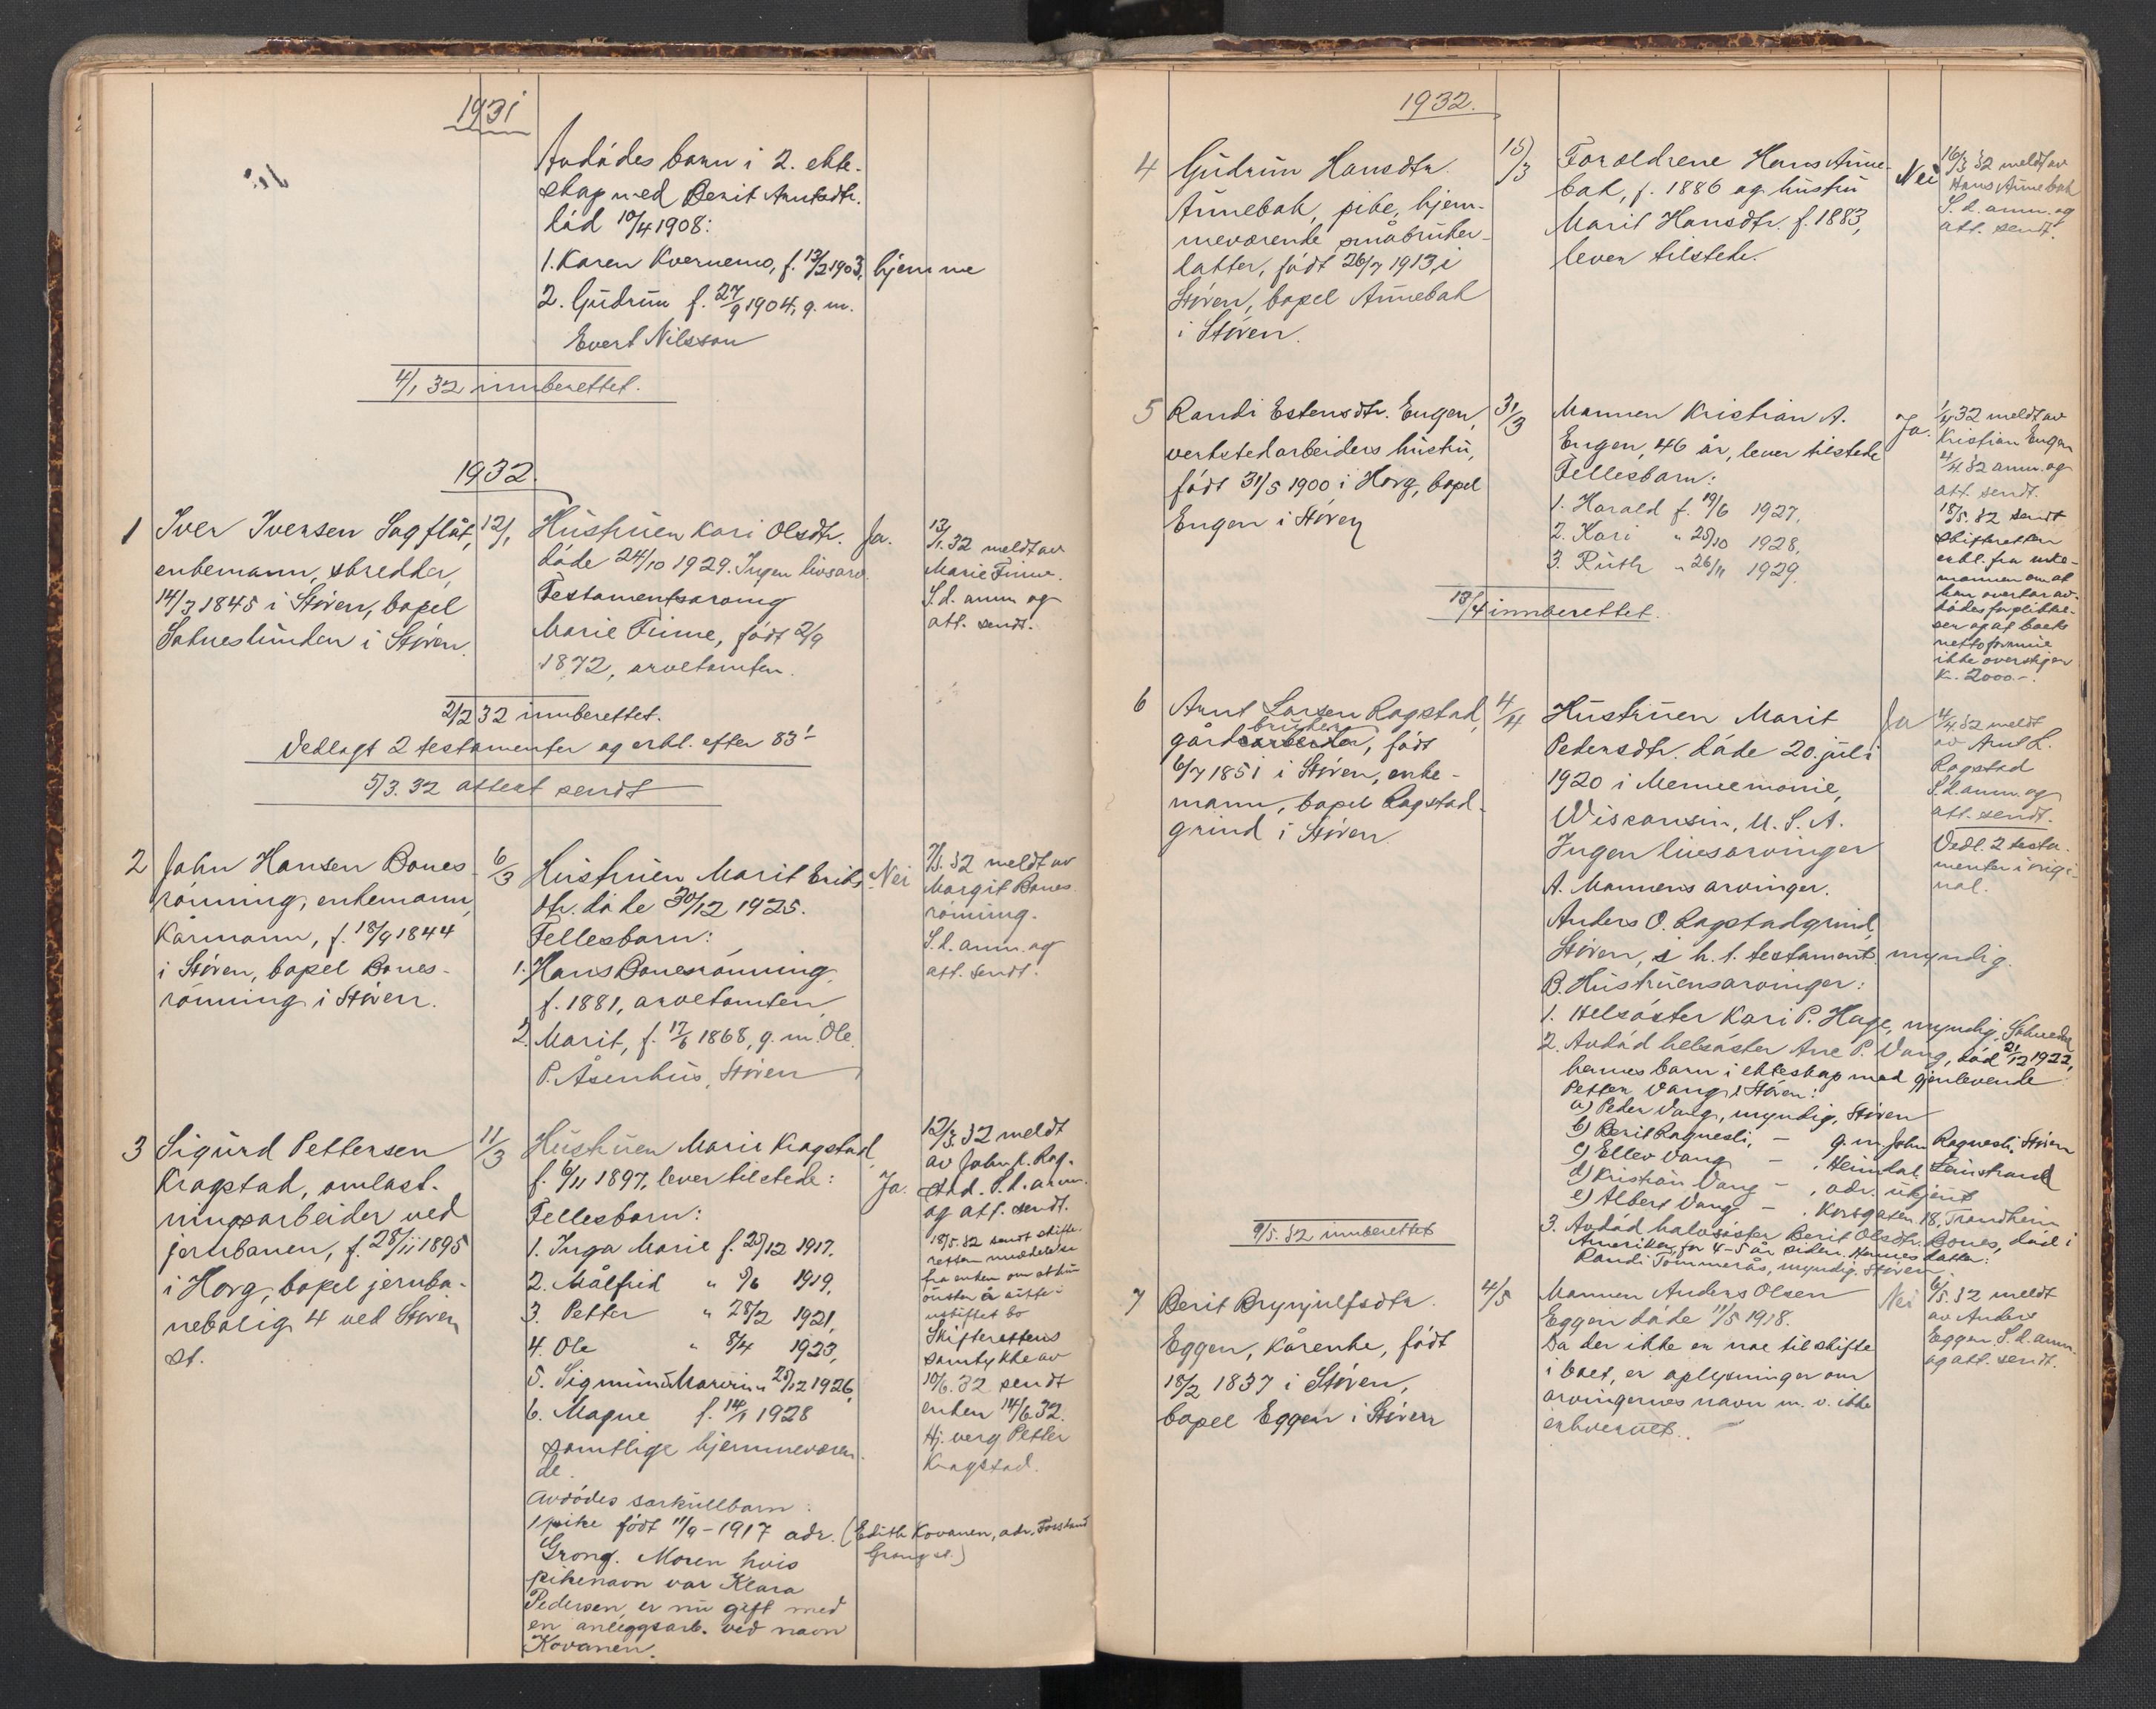 1931
Avdødes barn i 2. ekte-
skap med Berit Arntsdtr.
død 10/4 1908:
1. Karen Kvernmo, f. 13/2 1903, hjemme
2. Gudrun f. 27/9 1904, g. m.
Evert Nilsson
4/1 32 innberettet.
1932.
1 Iver Iversen Sagflåt,
enkemann, skredder,
14/3 1845 i Støren, bopel
i Støren.
12/1
Hustruen Kari Olsdtr.
døde 24/10 1929. Ingen livsarv.
Testamentsarving
Marie Finne, født 2/9
1872, arvetomten.
Ja.
13/1. 32 meldt av
Marie Finne.
S.d. anm. og
att. sendt.
2/2 32 innberettet.
Vedlagt 2 testamenter og erkl. efter 83
5/3. 32 attest sendt
2 John Hansen Bones-
rønning, enkemann
Kårmann, f. 18/9 1844
i Støren, bopel Bones-
rønning i Støren.
6/3
Hustruen Marit Eriks-
dtr. døde 30/12 1925.
Fellesbarn:
1. Hans Bonesrønning,
f. 1881, arvetomten
2. Marit, f. 17/6 1868, g. m. Ole
P. Åsenhus, Støren
Nei
7/3. 32 meldt av
Margit Bones-
rønning.
S.d. anm. og
att. sendt.
3 Sigurd Pettersen
Kragstad, omlast-
ningsarbeider ved
jernbanen, f. 28/11 1895
i Horg, bopel jernba-
nebolig 4 ved Støren
st.
11/3
Hustruen Marie Kragstad,
f. 6/11 1897, lever tilstede:
Fellesbarn:
1. Inga Marie f. 25/12 1917.
2. Målfrid " 5/6 1919,
3. Petter " 28/2 1921,
4. Ole " 8/4 1923,
5. Sigmund Marvin " 25/12 1926
6. Magne f. 14/1 1928
samtlige hjemmeværen-
de.
Avdødes særkullbarn:
1 pike født 11/9-1917 adr. (Edith Kovanen, adr. Forsland
Grong st.)
Grong. Moren hvis
pikenavn var Klara
Pedersen, er nu gift med
en anleggsarb. ved navn
Kovanen.
Ja.
12/3. 32 meldt
av John L. Rog-
stad. S.d. anm.
og att. sendt.
18/5. 32 sendt skifte-
retten meddelelse
fra enken om at hun
ønsker å sitte i
uskiftet bo
Skifterettens
samtykke av
10/6. 32 sendt
enken 14/6 32.
Hj. verg Petter
Kragstad.
1932.
4 Gudrun Hansdtr.
Aunebak, pike, hjem-
meværende småbruker-
datter, født 26/7 1913, i
Støren, bopel Aunebak
i Støren.
15/3
Foreldrene Hans Aune-
bak, f. 1886 og hustru
Marit Hansdtr. f. 1883,
lever tilstede.
Nei
16/3 32 meldt av
Hans Aunebak
S.d. anm. og
att. sendt.
5 Randi Estensdtr. Engen,
verkstedarbeiders hustru,
født 31/5 1900 i Horg, bopel
Engen i Støren
31/3
Mannen Kristian A.
Engen, 46 år, lever tilstede
Fellesbarn:
1. Harald f. 19/6 1927,
2. Kari " 25/10 1928,
3. Ruth " 26/11 1929.
Ja.
1/4 32 meldt av
Kristian Engen
4/4. 32 anm. og
att. sendt.
18/5. 32 sendt
skifteretten
erkl. fra enke-
mannen om at
han overtar av-
dødes forpliktel-
ser og at boets
nettoformue
ikke overstiger
Kr. 2000.-.
13/4 innberettet.
6 Arnt Larsen Rogstad,
gårdbruker, født
6/7 1851 i Støren, enke-
mann, bopel Rogstad-
grind i Støren.
4/4
Hustruen Marit
Pedersdtr. døde 20. juli
1920 i Menneemonie,
Wisconsin, U.S.A.
Ingen livsarvinger
A. Mannens arvinger.
Anders O. Rogstadgrind,
Støren, i h. t. testament. myndig.
B. Hustruens arvinger:
1. Helsøster Kari P. Hage, myndig,
2. Avdød helsøster Ane P. Vang, død 21/12 1922,
hennes barn i ekteskap med gjenlevende
Petter Vang i Støren:
a) Peder Vang, myndig, Støren
b) Berit Rognesli, — g. m. John Rognesli, Støren
c) Ellev Vang — , Heimdal, Leinstrand
d) Kristian Vang — , adr. ukjent
e) Albert Vang — , Korsgaten 18, Trondheim
3. Avdød halvsøster Berit Olsdtr. Bones, død i
Amerika for 4-5 år siden. Hennes datter:
Randi Tømmerås, myndig. Støren
Ja
4/4. 32 meldt
av Arnt L.
Rogstad
S.d. anm. og
att. sendt.
Vedl. 2 testa-
menter i origi-
nal.
9/5. 32 innberettet
7 Berit Brynjulfsdtr.
Eggen, kårenke, født
18/2 1837 i Støren,
bopel Eggen i Støren
4/5
Mannen Anders Olsen
Eggen døde 11/5 1918.
Da der ikke er noe til skifte
i boet, er oplysninger om
arvingernes navn m. v. ikke
erhvervet.
Nei
6/5. 32 meldt
av Anders
Eggen S.d. anm.
og att. sendt.